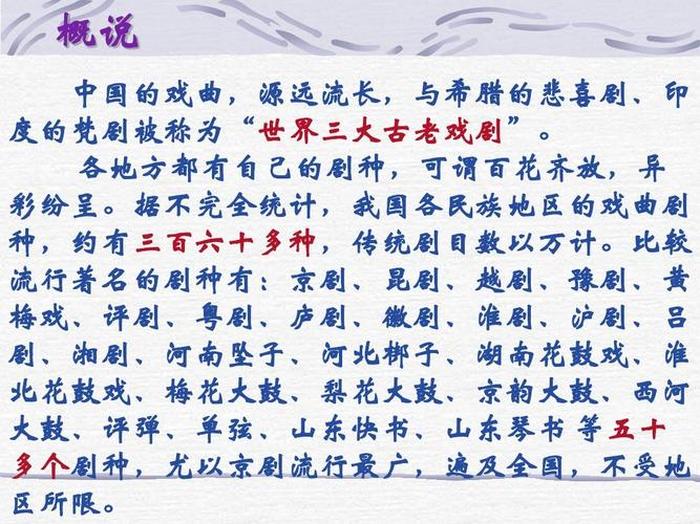 概说
中国的戏曲，源远流长，与希腊的悲喜剧、印
度的梵剧被称为“世界三大古老戏剧”。
各地方都有自己的剧种，可谓百花齐放，异
彩纷呈。据不完全统计，我国各民族地区的戏曲剧
种，约有三百六十多种，传统剧目数以万计。比较
流行著名的剧种有：京剧、昆剧、越剧、豫剧、黄
梅戏、评剧、粤剧、庐剧、徽剧、淮剧、沪剧、吕
剧、湘剧、河南坠子、河北梆子、湖南花鼓戏、淮
北花鼓戏、梅花大鼓、梨花大鼓、京韵大鼓、西河
大鼓、评弹、单弦、山东快书、山东琴书等五十
多个剧种，尤以京剧流行最广，遍及全国，不受地
区所限。